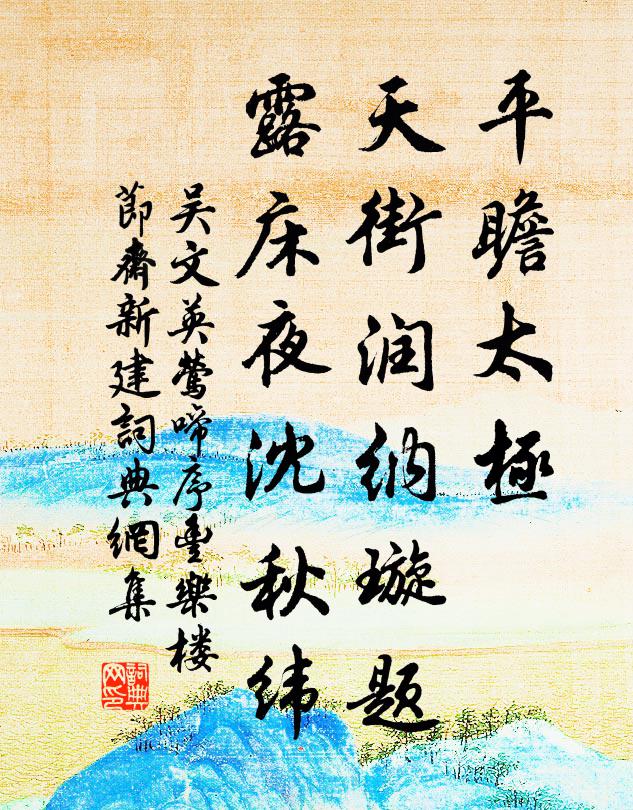 平瞻太極
天街润纳璇题
露床夜沈秋纬
吴文英莺啼序豐樂楼
節齋新建詞典網集
詞典网印